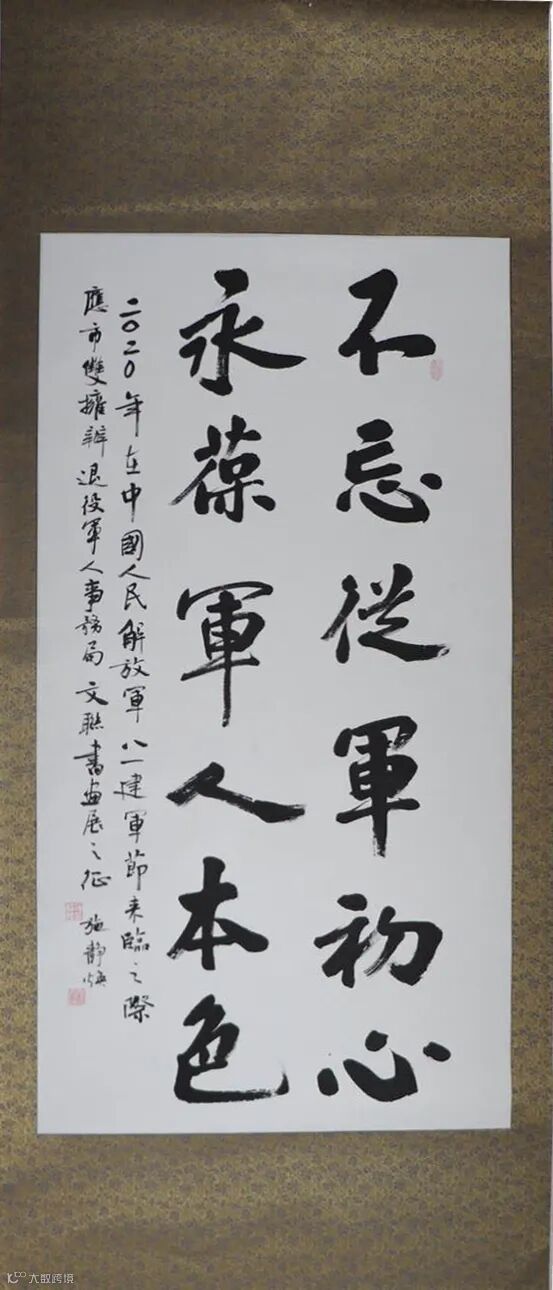 不忘從軍初心
永葆軍人本色
二〇二〇年在中國人民解放軍八一建軍節来臨之際
應市雙擁辦退役軍人事務局文聯書画展之征
施靜
大数跨境